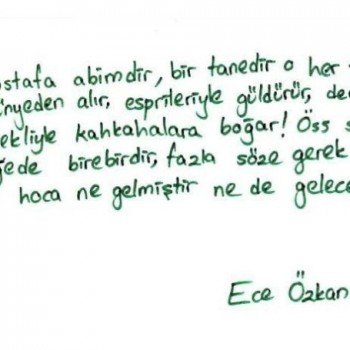 stafa abimdir, bir tanedir o her
nyeden alır, esprileriyle güldürür, de
ekliyle kahkahalara boğar! Öss s
ede birebirdir, fazla söze gerek
hoca ne gelmiştir ne de gelece
Ece Özkan